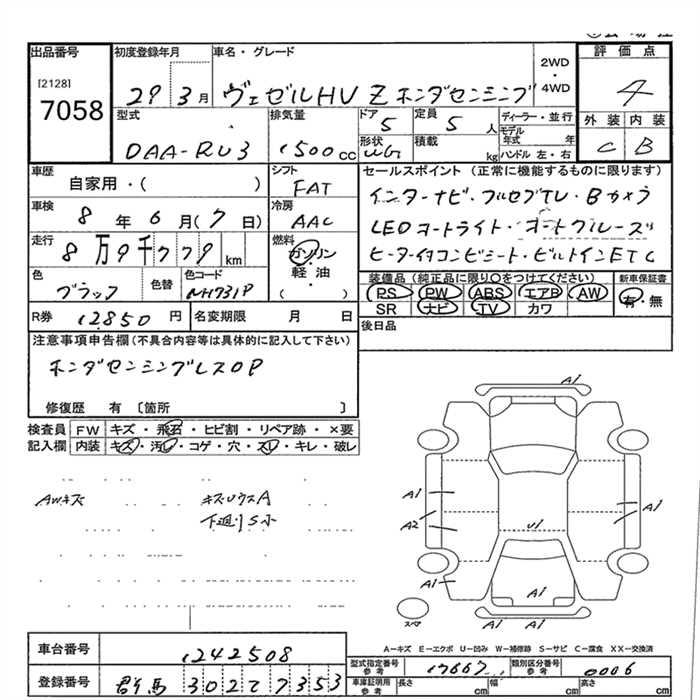 出品番号
[2128]
7058
初度登録年月
29 3月
車名・グレード
ヴェゼルHV Z ホンダセンシング
2WD
・
4WD
評価点
4
外装 内装
C B
型式
DAA-RU3
排気量
1500cc
ドア
5
定員
5人
形状
WG
積載
kg
ディーラー・並行
モデル
年式 年
ハンドル 左・右
車歴
自家用・( )
シフト
FAT
車検
8年6月(7日)
冷房
AAC
走行
8万9千779km
燃料
ガソリン
・
軽・油
・
( )
色
ブラック
色替
色コード
NH731P
R券
12850円
名変期限 月 日
セールスポイント (正常に機能するものに限ります)
インターナビ・フルセグTV・Bカメラ
LEDオートライト・オートクルーズ
ヒーター付コンビシート・ビルトインETC
装備品 (純正品に限り○をつけてください)
PS PW ABS エアB AW
SR ナビ TV カワ
新車保証書
有・無
後日品
注意事項申告欄 (不具合内容等は具体的に記入して下さい)
ホンダセンシングレスOP
修復歴 有 [箇所 ]
検査員
記入欄
FW キズ・飛石・ヒビ割・リペア跡・×要
内装 キズ・汚れ・コゲ・穴・スレ・キレ・破レ
AWキズ
キズUウスA
下廻りS小
A1
A1
A2
A1
U1
A1
A1
A1 A1
スペア
A-キズ E-エクボ U-凹み W-補修跡 S-サビ C-腐食 XX-交換済
車台番号
1242508
登録番号
群馬 302 7353
型式指定番号
参考
17667
類別区分番号
参考
0006
車庫証明用
参考
長さ cm 幅 cm 高さ cm